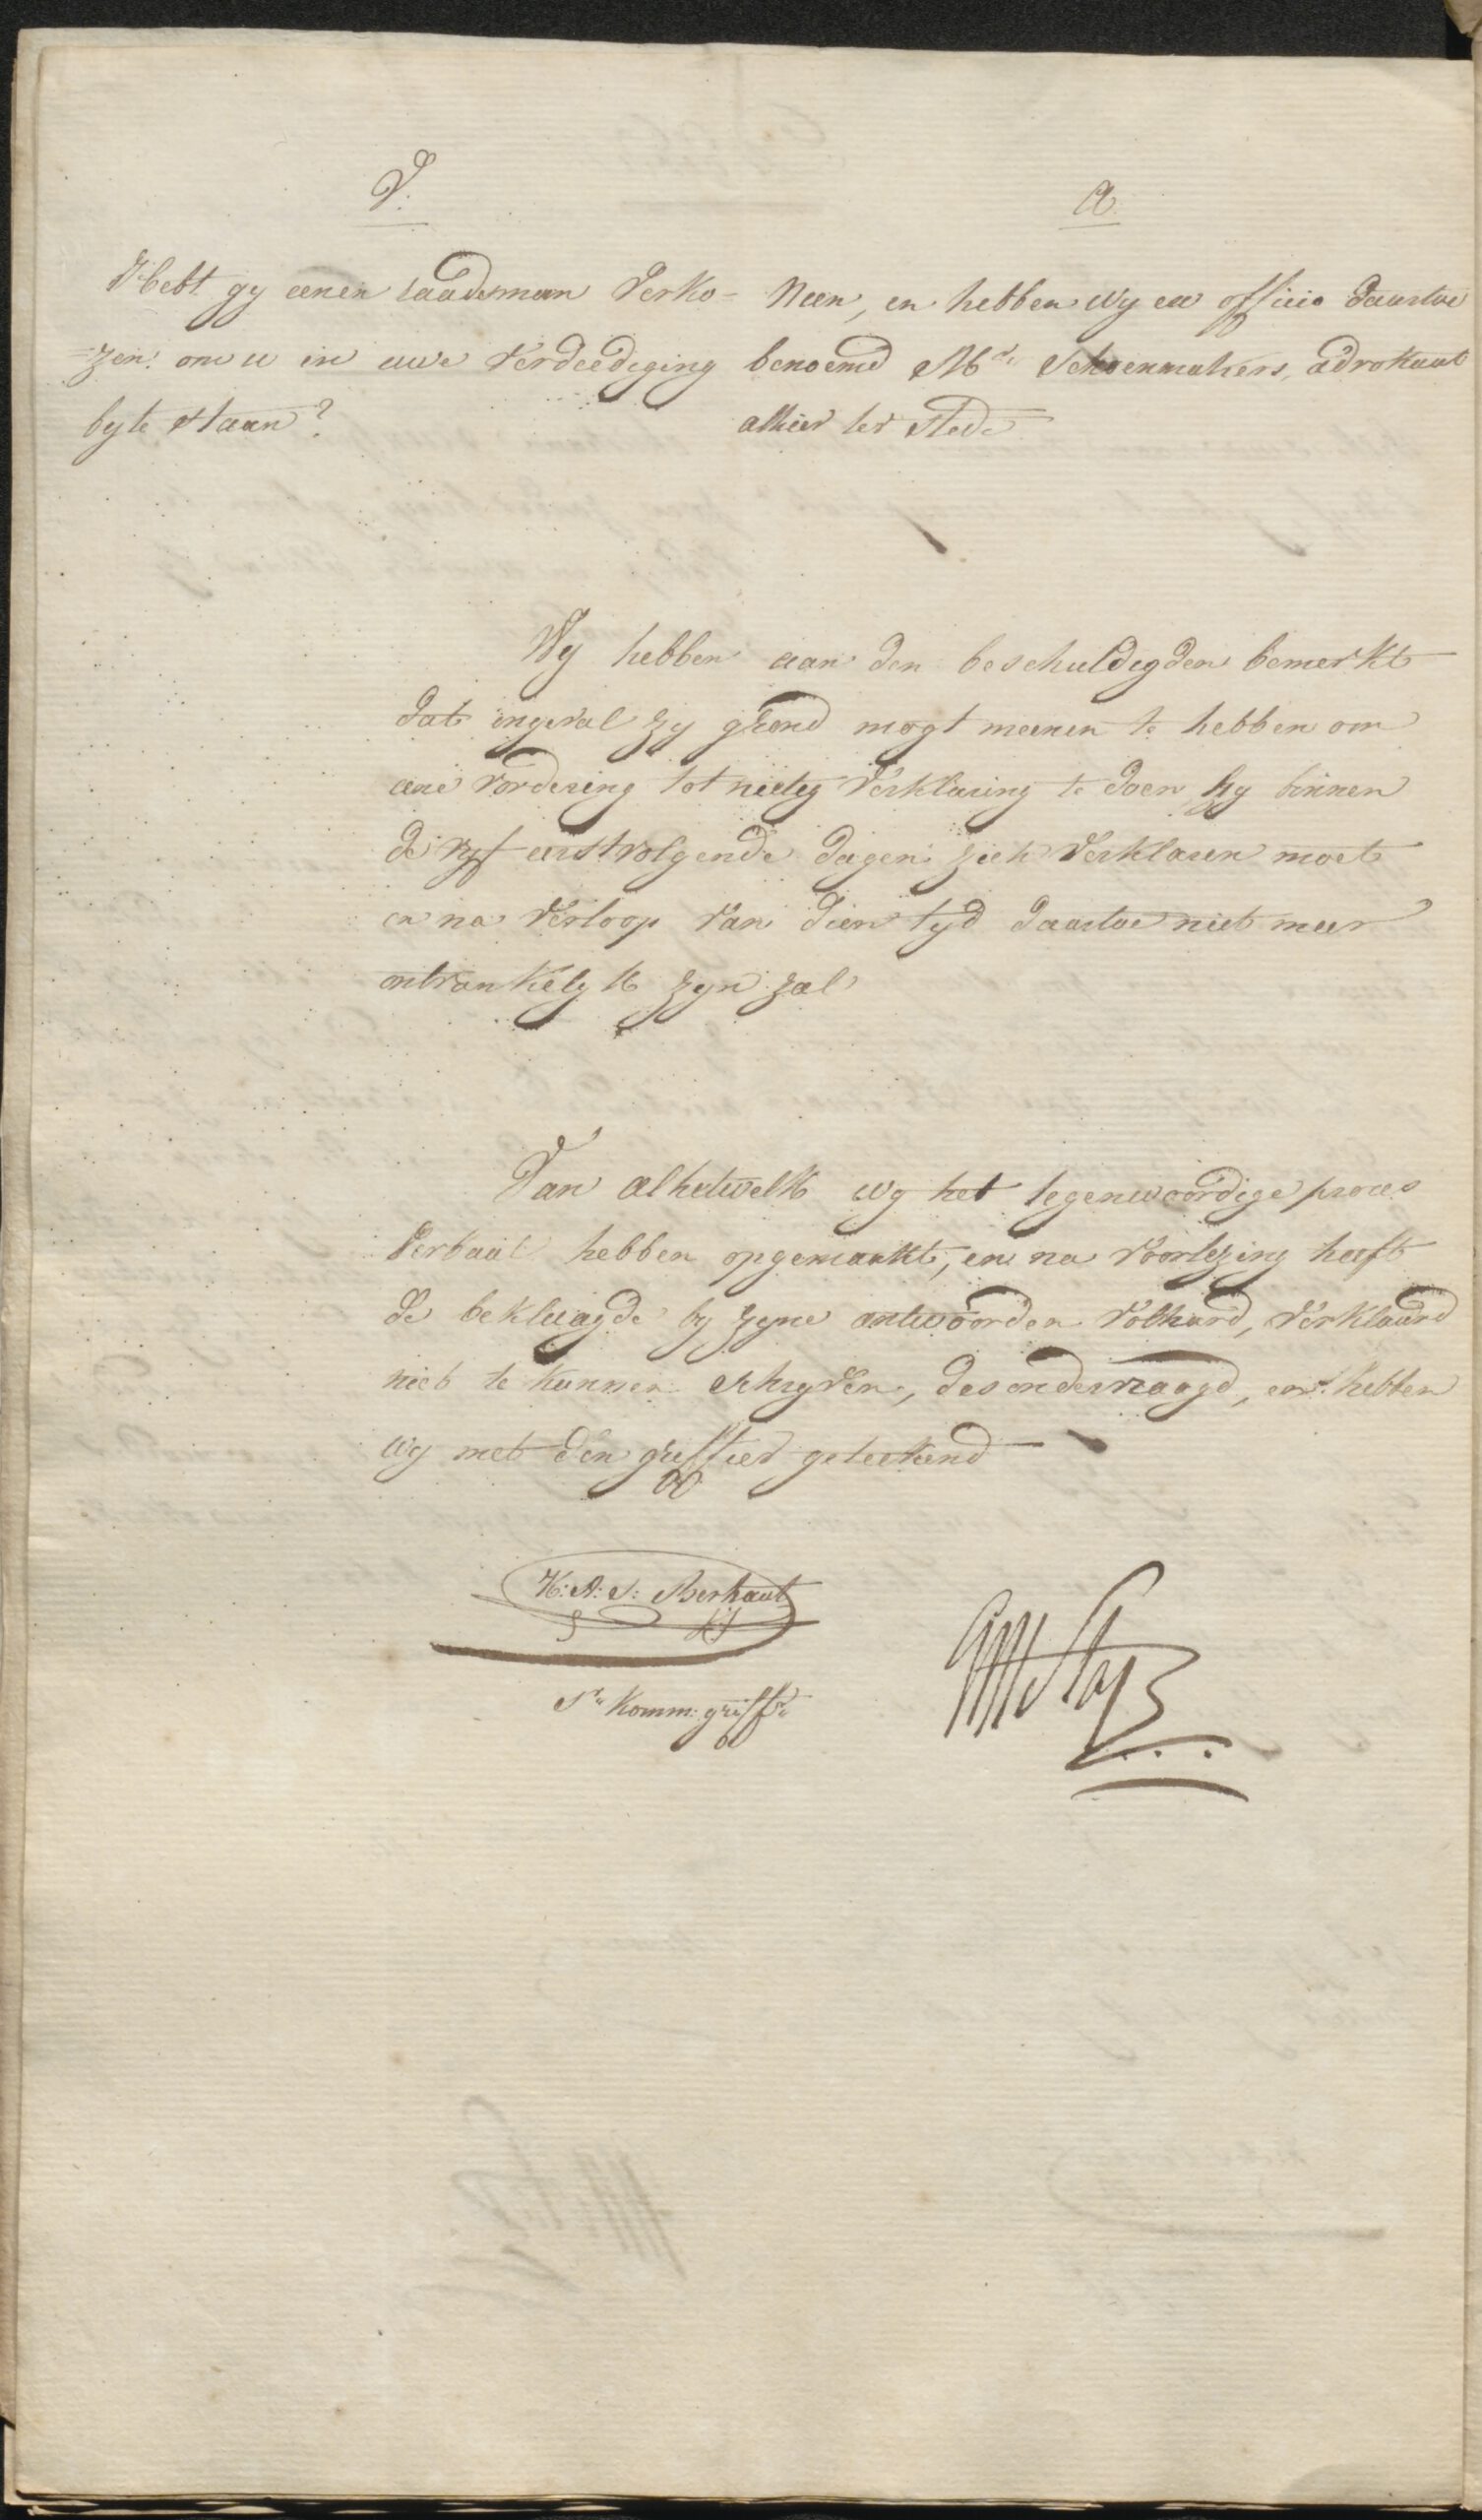 V.
Hebt gy eenen raadsman verko=
=zen om u in uwe verdediging
by te staan?
A
Neen, en hebben wy ex officio daartoe
benoemd Mr. Schoenmakers, advokaat
alhier ter stede
Wy hebben aan den beschuldigden bemerkt
dat ingeval hy grond mogt meenen te hebben om
eene vordering tot nietig verklaring te doen hy binnen
de vyf eerstvolgende dagen zich verklaren moet
en na verloop van dien tyd daartoe niet meer
ontvankelyk zyn zal
Van alhetwelk wy het tegenwoordige proces
verbaal hebben opgemaakt, en na voorlezing heeft
de beklaagde by zyne antwoorden volhard, verklaard
niet te kunnen schryven, des ondervraagd, en hebben
wy met den griffier geteekend
Komm: griffr